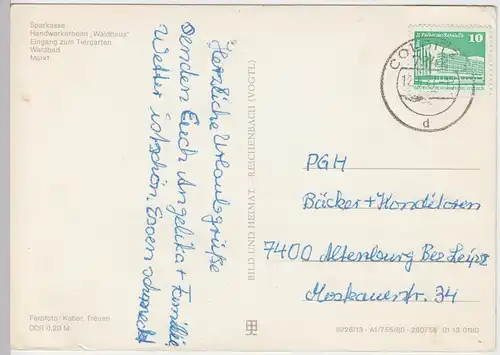 Sparkasse
Handwerkerheim „Waldhaus"
Eingang zum Tiergarten
Waldbad
Markt
Herzliche Urlaubsgrüße
senden Euch Angelika + Familie
Wetter ist schön. Essen schmeckt
Farbfoto: Kober, Treuen
DDR 0,20 M
BILD UND HEIMAT REICHENBACH (VOGTL)
III/26/13 A1/755/80 280755 01 13 0180
10
COL
d
PGH
Bäcker + Konditoren
7400 Altenburg Bez Leipz
Moskauerstr. 34